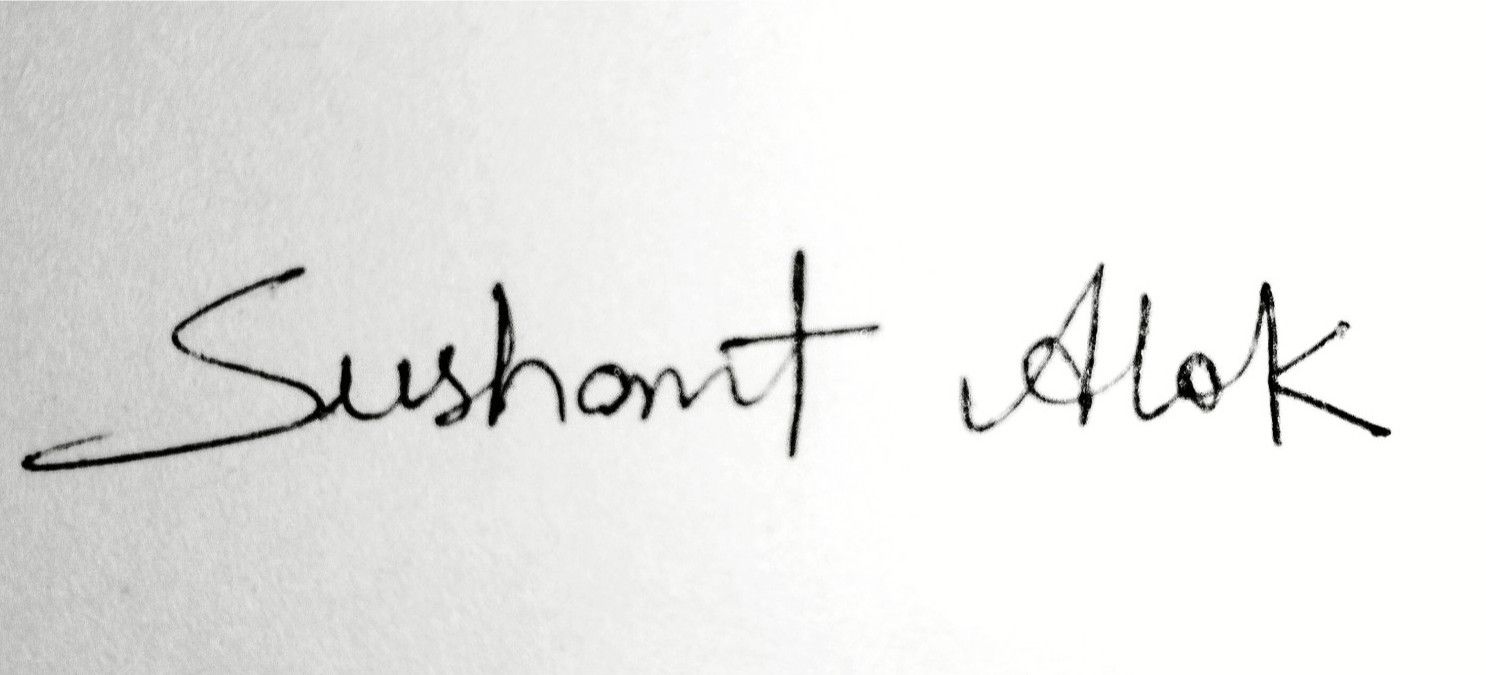 Sushant Alok